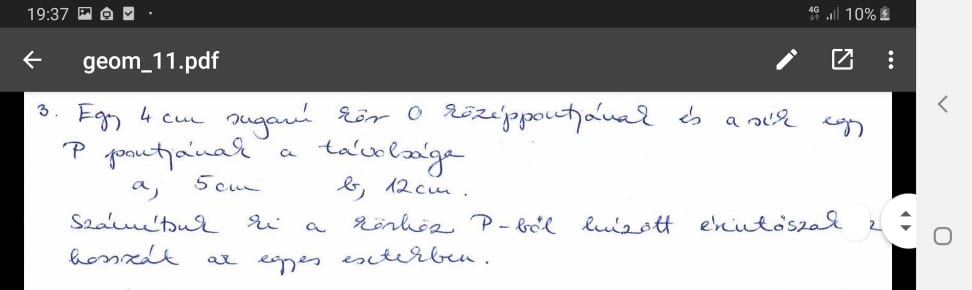 19:37 4G 10%
geom_11.pdf
3. Egy 4 cm sugarú kör O középpontjának és a sík egy
P pontjának a távolsága
a, 5 cm b, 12 cm.
Számítsuk ki a körhöz P-ből húzott érintőszakasz
hosszát az egyes esetekben.